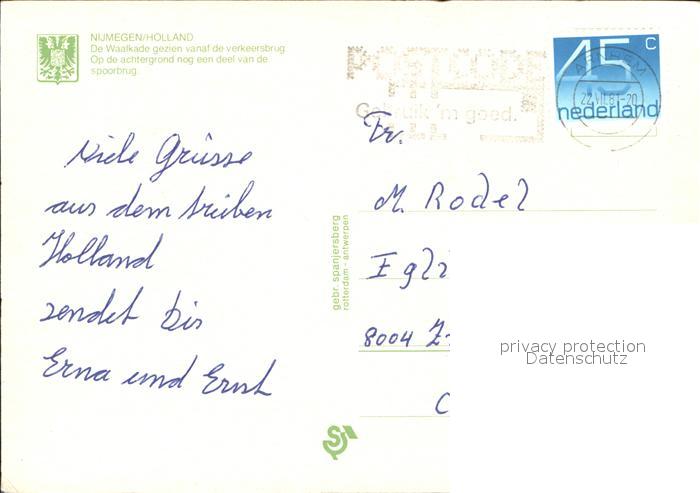 NIJMEGEN/HOLLAND
De Waalkade gezien vanaf de verkeersbrug
Op de achtergrond nog een deel van de
spoorbrug.
POSTCODE
Gebruik 'm goed.
45 c
nederland
ARNHEM
22.VII.81-20
Viele Grüsse
aus dem trüben
Holland
sendet bis
Erna und Ernst
gebr. spanjersberg
rotterdam - antwerpen
Fr.
M. Rodel
Egli
8004 Z
C
privacy protection
Datenschutz